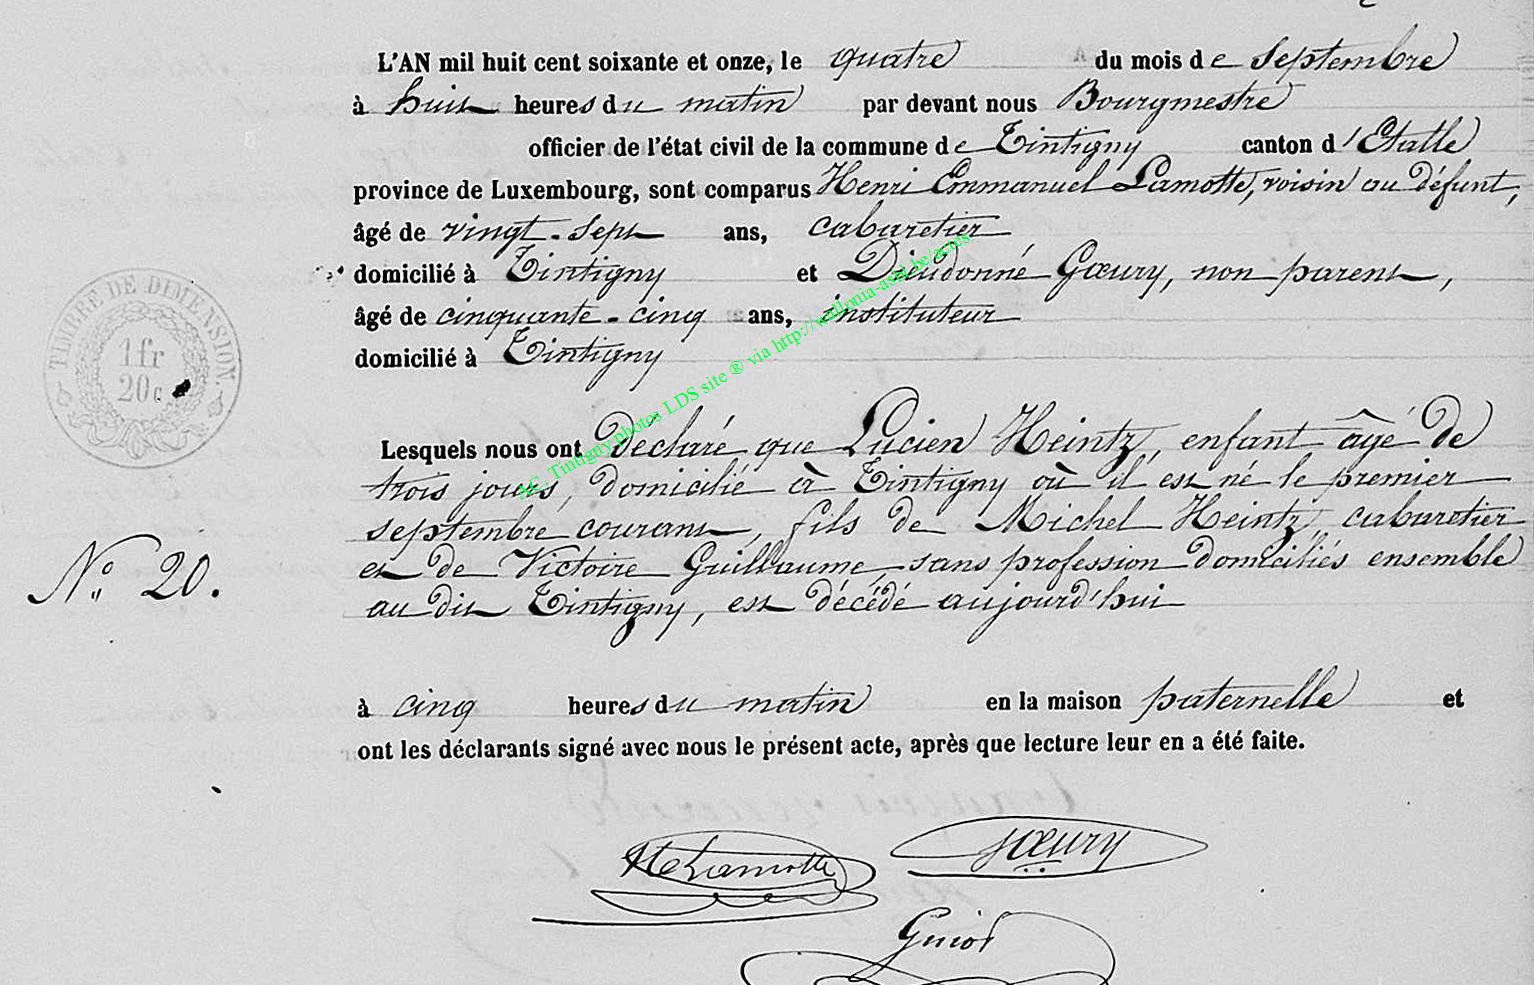 L'AN mil huit cent soixante et onze, le quatre du mois de Septembre
à huit heures du matin par devant nous Bourgmestre
officier de l'état civil de la commune de Tintigny canton d'Etalle
province de Luxembourg, sont comparus Henri Emmanuel Lamotte, voisin au défunt,
âgé de vingt-sept ans, cabaretier
domicilié à Tintigny et Dieudonné Gœury, non parent,
âgé de cinquante-cinq ans, instituteur
domicilié à Tintigny
TIMBRE DE DIMENSION.
1 fr
20 c
Lesquels nous ont Déclaré que Lucien Heintz, enfant âgé de
trois jours, domicilié à Tintigny où il est né le premier
septembre courant, fils de Michel Heintz, cabaretier
et de Victoire Guillaume, sans profession domiciliés ensemble
au dit Tintigny, est décédé aujourd'hui
N° 20.
à cinq heures du matin en la maison paternelle et
ont les déclarants signé avec nous le présent acte, après que lecture leur en a été faite.
HELamotte
Gœury
Guiot
AC. Tintigny photos LDS site ® via http://wallonia-asbl.be/actes